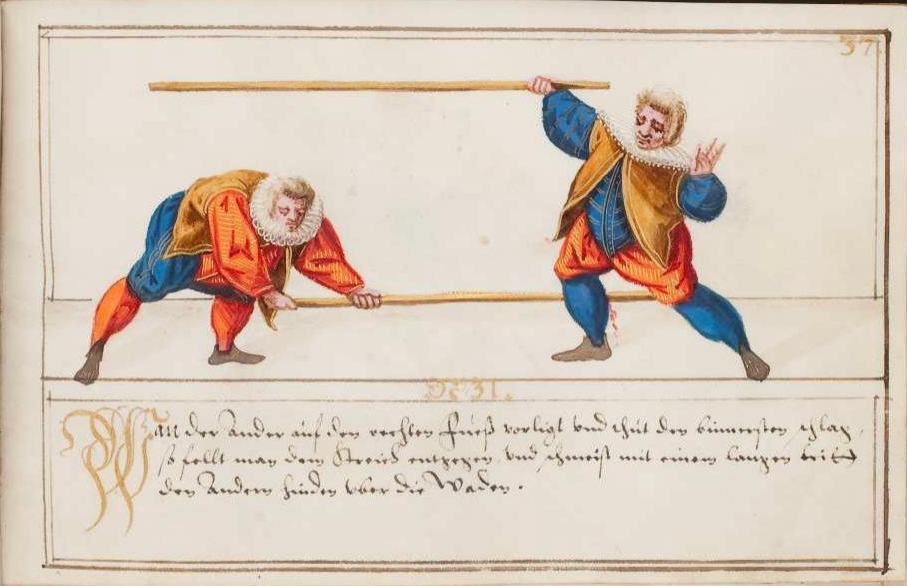 37
No 31.
Wan der Ander auf den rechten Fueß vorligt vnd thůt den schlag,
so fellt man dem Streich entgegen, vnd schmeist mit einem langen tritt
den Andern hinden vber die Waden.